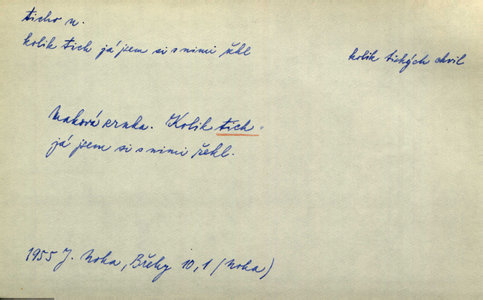 ticho n.
kolik tich já jsem si s nimi řekl
kolik tichých chvil
Maková zrnka. Kolik tich
já jsem si s nimi řekl.
1955 J. Noha, Břehy 10, 1 (Noha)